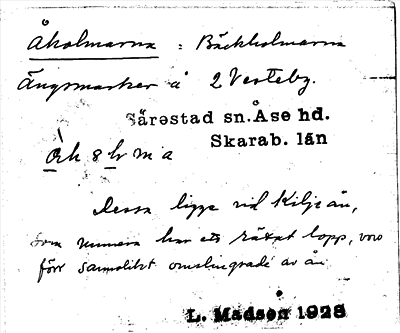 Åholmarna : Bäckholmarna
Ängsmarker å 2 Vesteby.
Särestad sn. Åse hd.
Skarab. län
Åh 8 lr m a
Dessa ligga vid Kiljeån,
som numera har ett rätat lopp, voro
förr samolikt omslingrade av ån
L. Madsén 1928